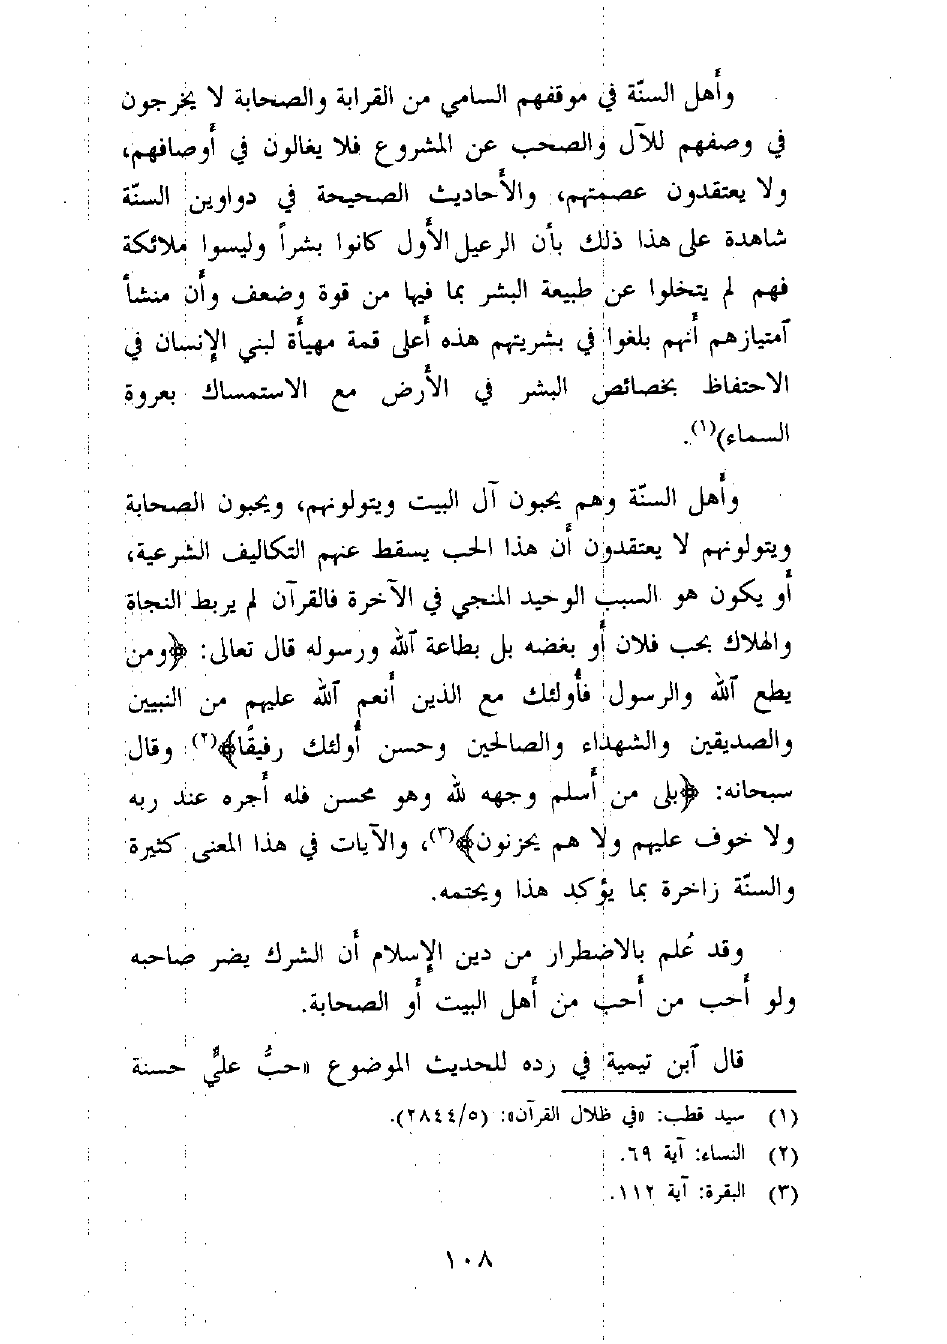 وأَهل السنّة في موقفهم السامي من القرابة والصحابة لا يخرجون
في وصفهم للآل والصحب عن المشروع فلا يغالون في أَوصافهم،
ولا يعتقدون عصمتهم، والأَحاديث الصحيحة في دواوين السنّة
شاهدة على هذا ذلك بأَن الرعيل الأَول كانوا بشراً وليسوا ملائكة
فهم لم يتخلوا عن طبيعة البشر بما فيها من قوة وضعف وأَن منشأ
آمتيازهم أَنهم بلغوا في بشريتهم هذه أَعلى قمة مهيأَة لبني الإِنسان في
الاحتفاظ بخصائص البشر في الأَرض مع الاستمساك بعروة
السماء)(١).
وأَهل السنّة وهم يحبون آل البيت ويتولونهم، ويحبون الصحابة
ويتولونهم لا يعتقدون أَن هذا الحب يسقط عنهم التكاليف الشرعية،
أَو يكون هو السبب الوحيد المنجي في الآخرة فالقرآن لم يربط النجاة
والهلاك بحب فلان أَو بغضه بل بطاعة ٱلله ورسوله قال تعالى: ﴿ومن
يطع ٱلله والرسول فأُولئك مع الذين أَنعم ٱلله عليهم من النبيين
والصديقين والشهداء والصالحين وحسن أُولئك رفيقًا﴾(٢) وقال
سبحانه: ﴿بلى من أَسلم وجهه لله وهو محسن فله أَجره عند ربه
ولا خوف عليهم ولا هم يحزنون﴾(٣)، والآيات في هذا المعنى كثيرة
والسنّة زاخرة بما يؤكد هذا ويحتمه.
وقد عُلم بالاضطرار من دين الإِسلام أَن الشرك يضر صاحبه
ولو أَحب من أَحب من أَهل البيت أَو الصحابة.
قال آبن تيمية في رده للحديث الموضوع «حبُّ عليٍّ حسنة
(١) سيد قطب: «في ظلال القرآن»: (٢٨٤٤/٥).
(٢) النساء: آية ٦٩.
(٣) البقرة: آية ١١٢.
١٠٨